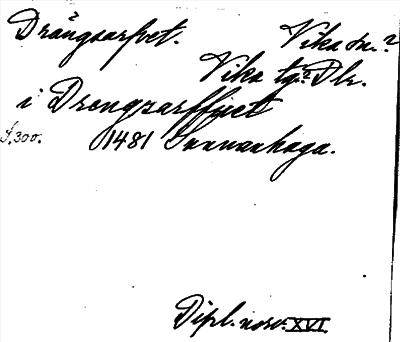 Drängsarfvet. Vika sn.?
Vika tg.? Dlr.
i Drengxarffwet
S. 300. 1481 Sunnanhaga.
Dipl. norv. XVI.